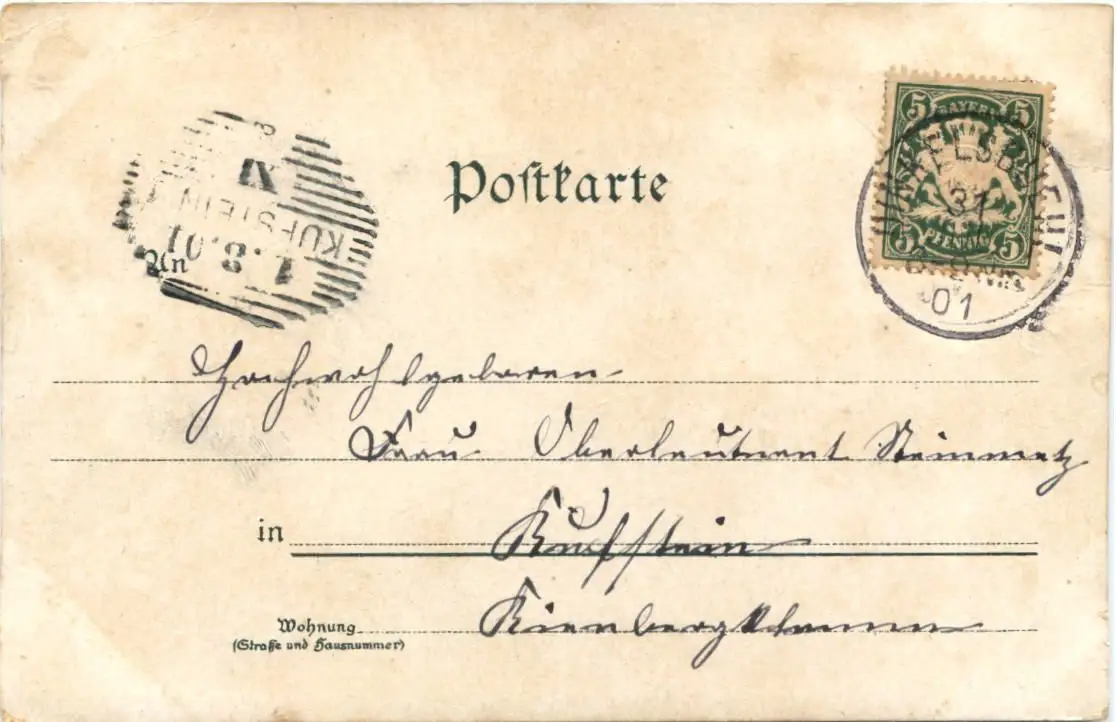 Postkarte
5 5
BAYERN
PFENNIG
5 5
31
01
IV
KUFSTEIN
1.8.01
An
Hochwohlgeboren
Frau Oberleutnant Steinmetz
in Kufstein
Wohnung Kienbergklamm
(Straße und Hausnummer)